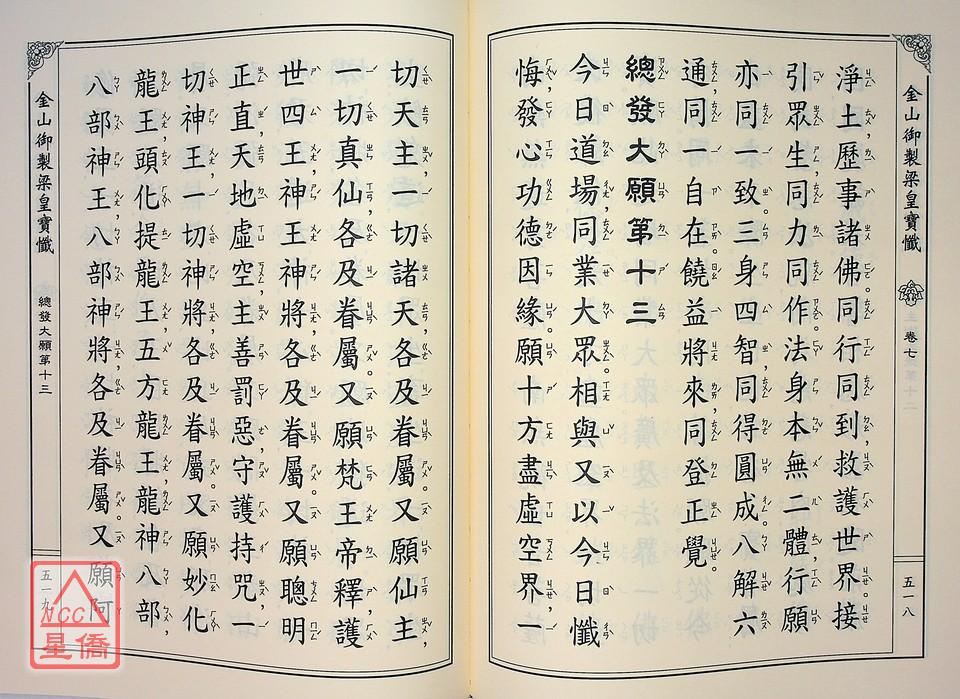 金山御製梁皇寶懺
卷七
五一八
淨土，歷事諸佛。同行同到，救護世界。接
引眾生，同力同作。法身本無二體，行願
亦同一致。三身四智，同得圓成。八解六
通，同一自在。饒益將來，同登正覺。
總發大願第十三
今日道場，同業大眾。相與又以今日懺
悔，發心功德因緣。願十方盡虛空界，一
切天主，一切諸天，各及眷屬。又願仙主，
一切真仙，各及眷屬。又願梵王帝釋，護
世四王，神王神將，各及眷屬。又願聰明
正直，天地虛空，主善罰惡，守護持咒，一
切神王，一切神將，各及眷屬。又願妙化
龍王，頭化提龍王，五方龍王，龍神八部，
八部神王，八部神將，各及眷屬。又願阿
金山御製梁皇寶懺
總發大願第十三
五一九
NCC
星僑